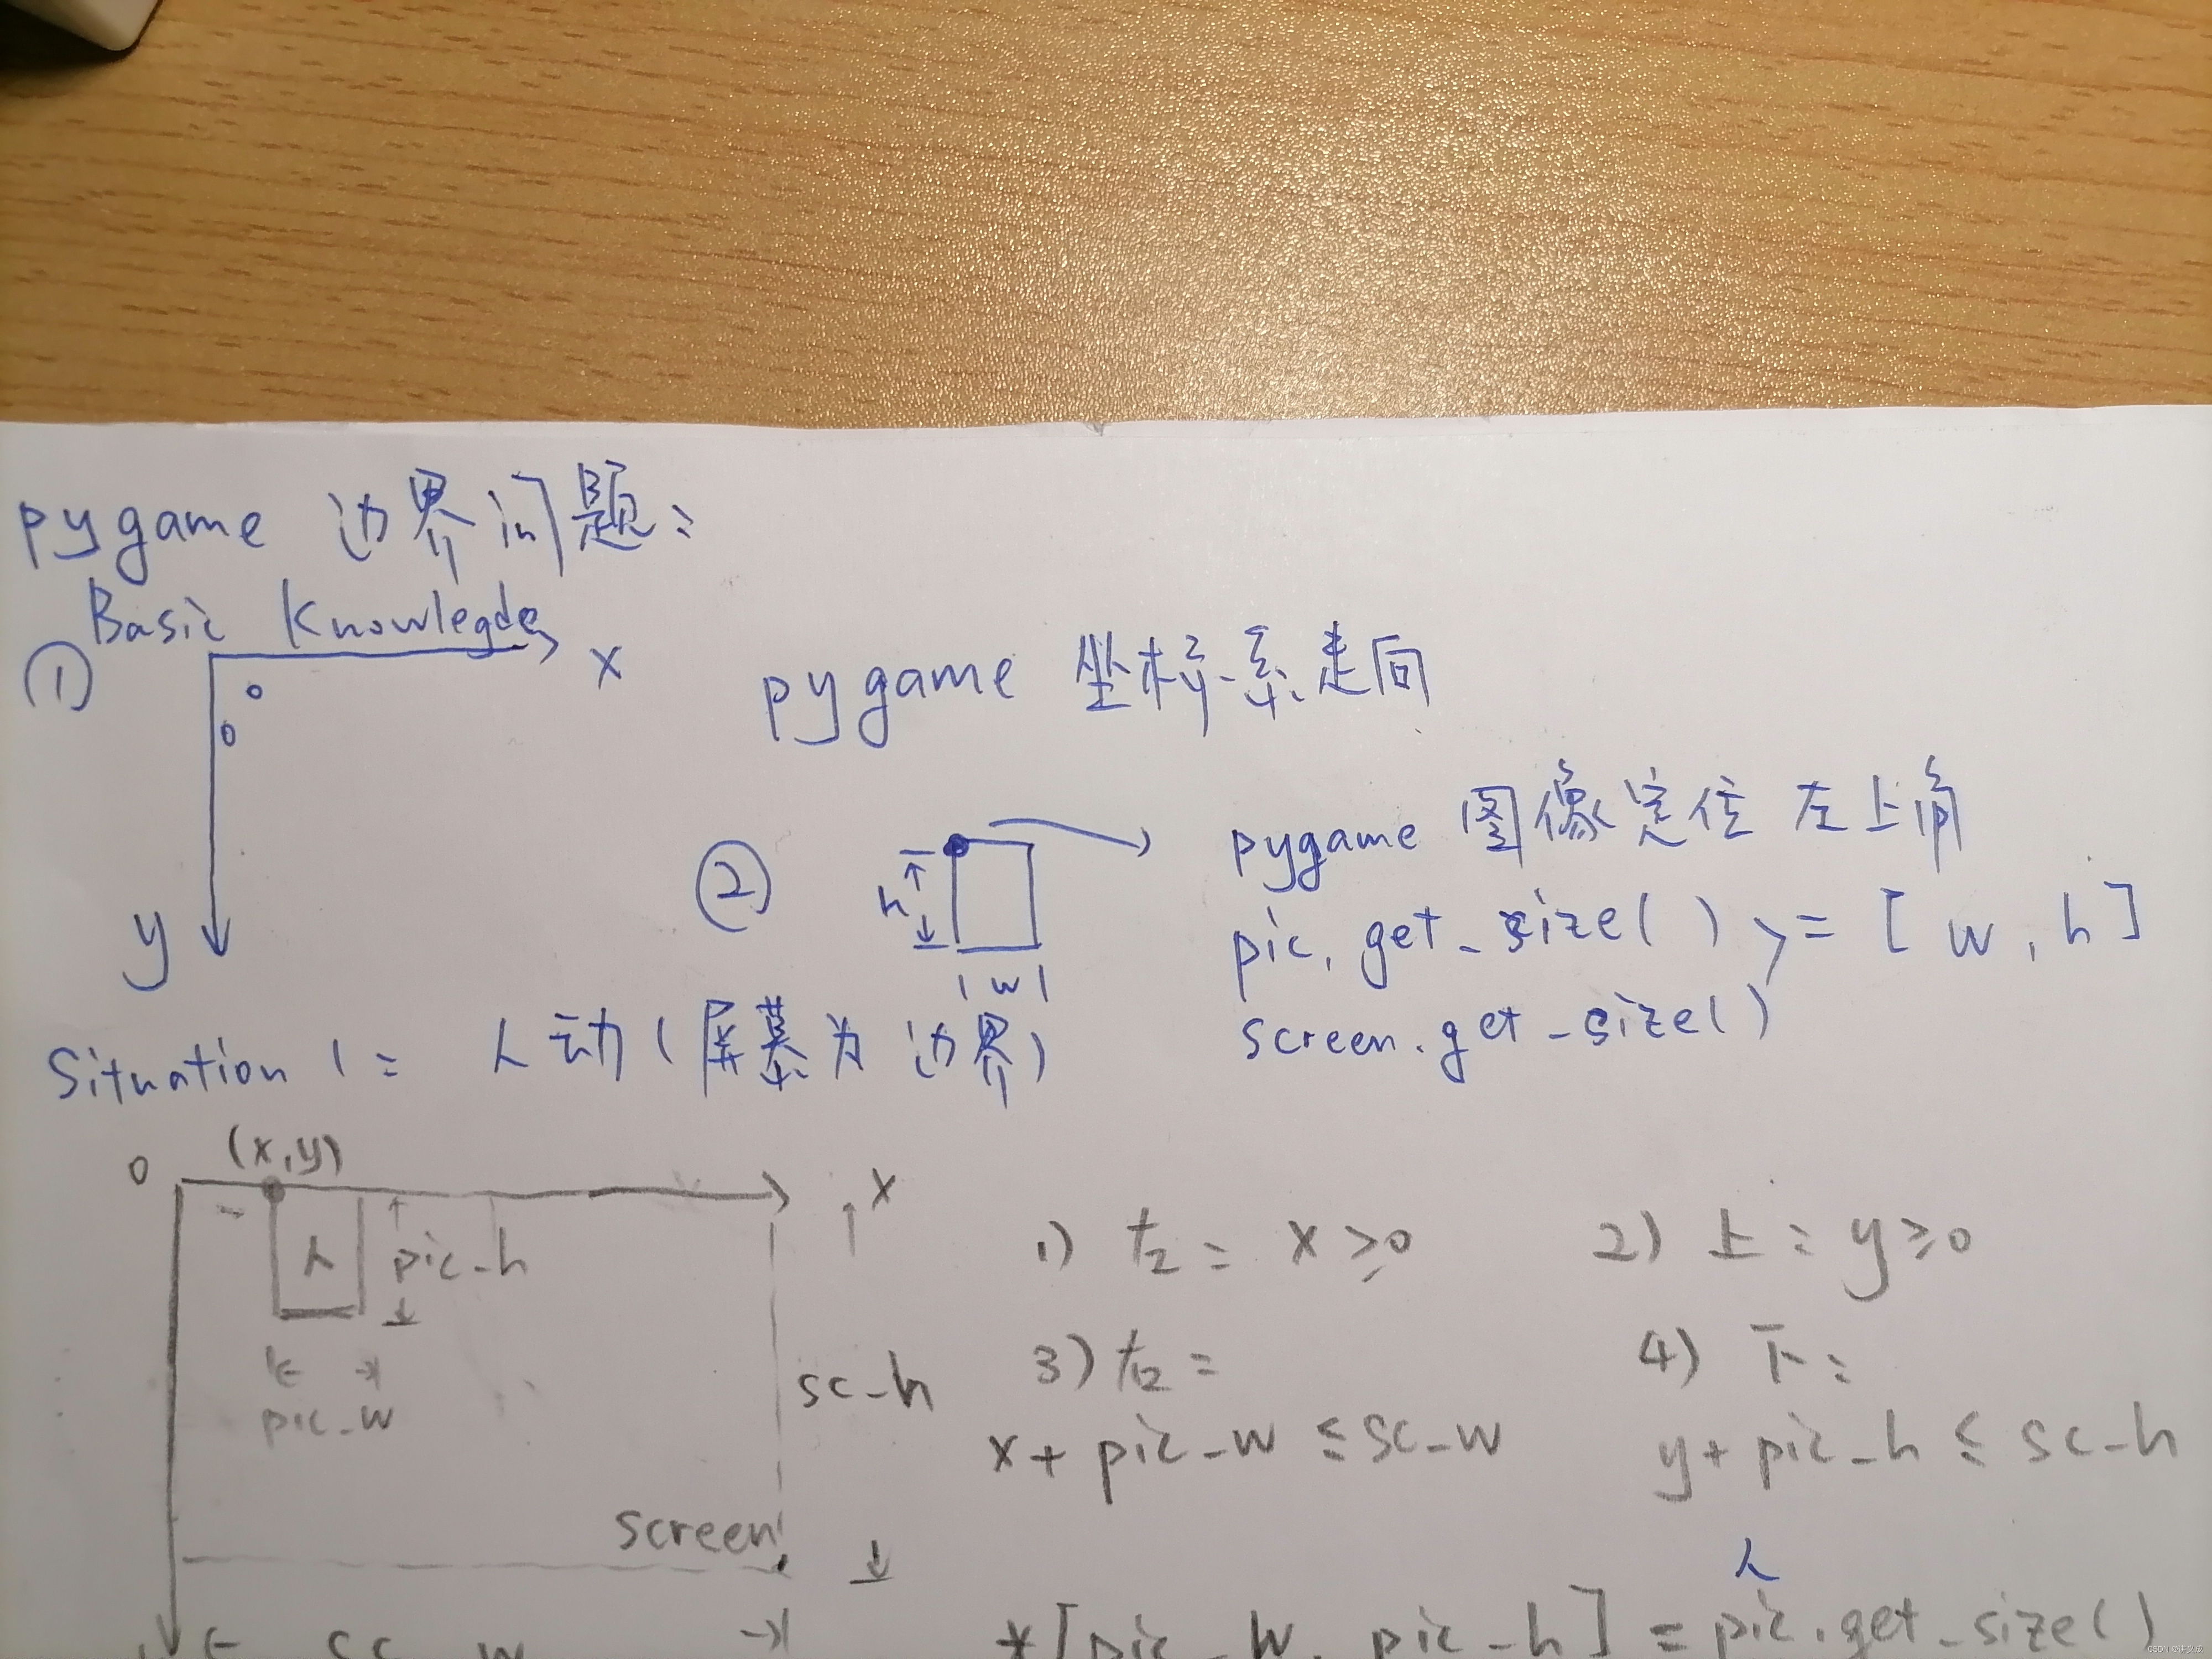 pygame 边界问题:
Basic Knowlegde
① x
0
0
y
pygame 坐标系走向
②
h
w
pygame 图像定位 左上角
pic.get_size() = [w, h]
screen.get_size()
Situation 1: 人动(屏幕为边界)
0 (x,y) x
人 pic_h
pic_w
sc_h
screen
sc_w
1) 左: x≥0
2) 上: y≥0
3) 右:
x+pic_w ≤ sc_w
4) 下:
y+pic_h ≤ sc_h
人
*[pic_w, pic_h] = pic.get_size()